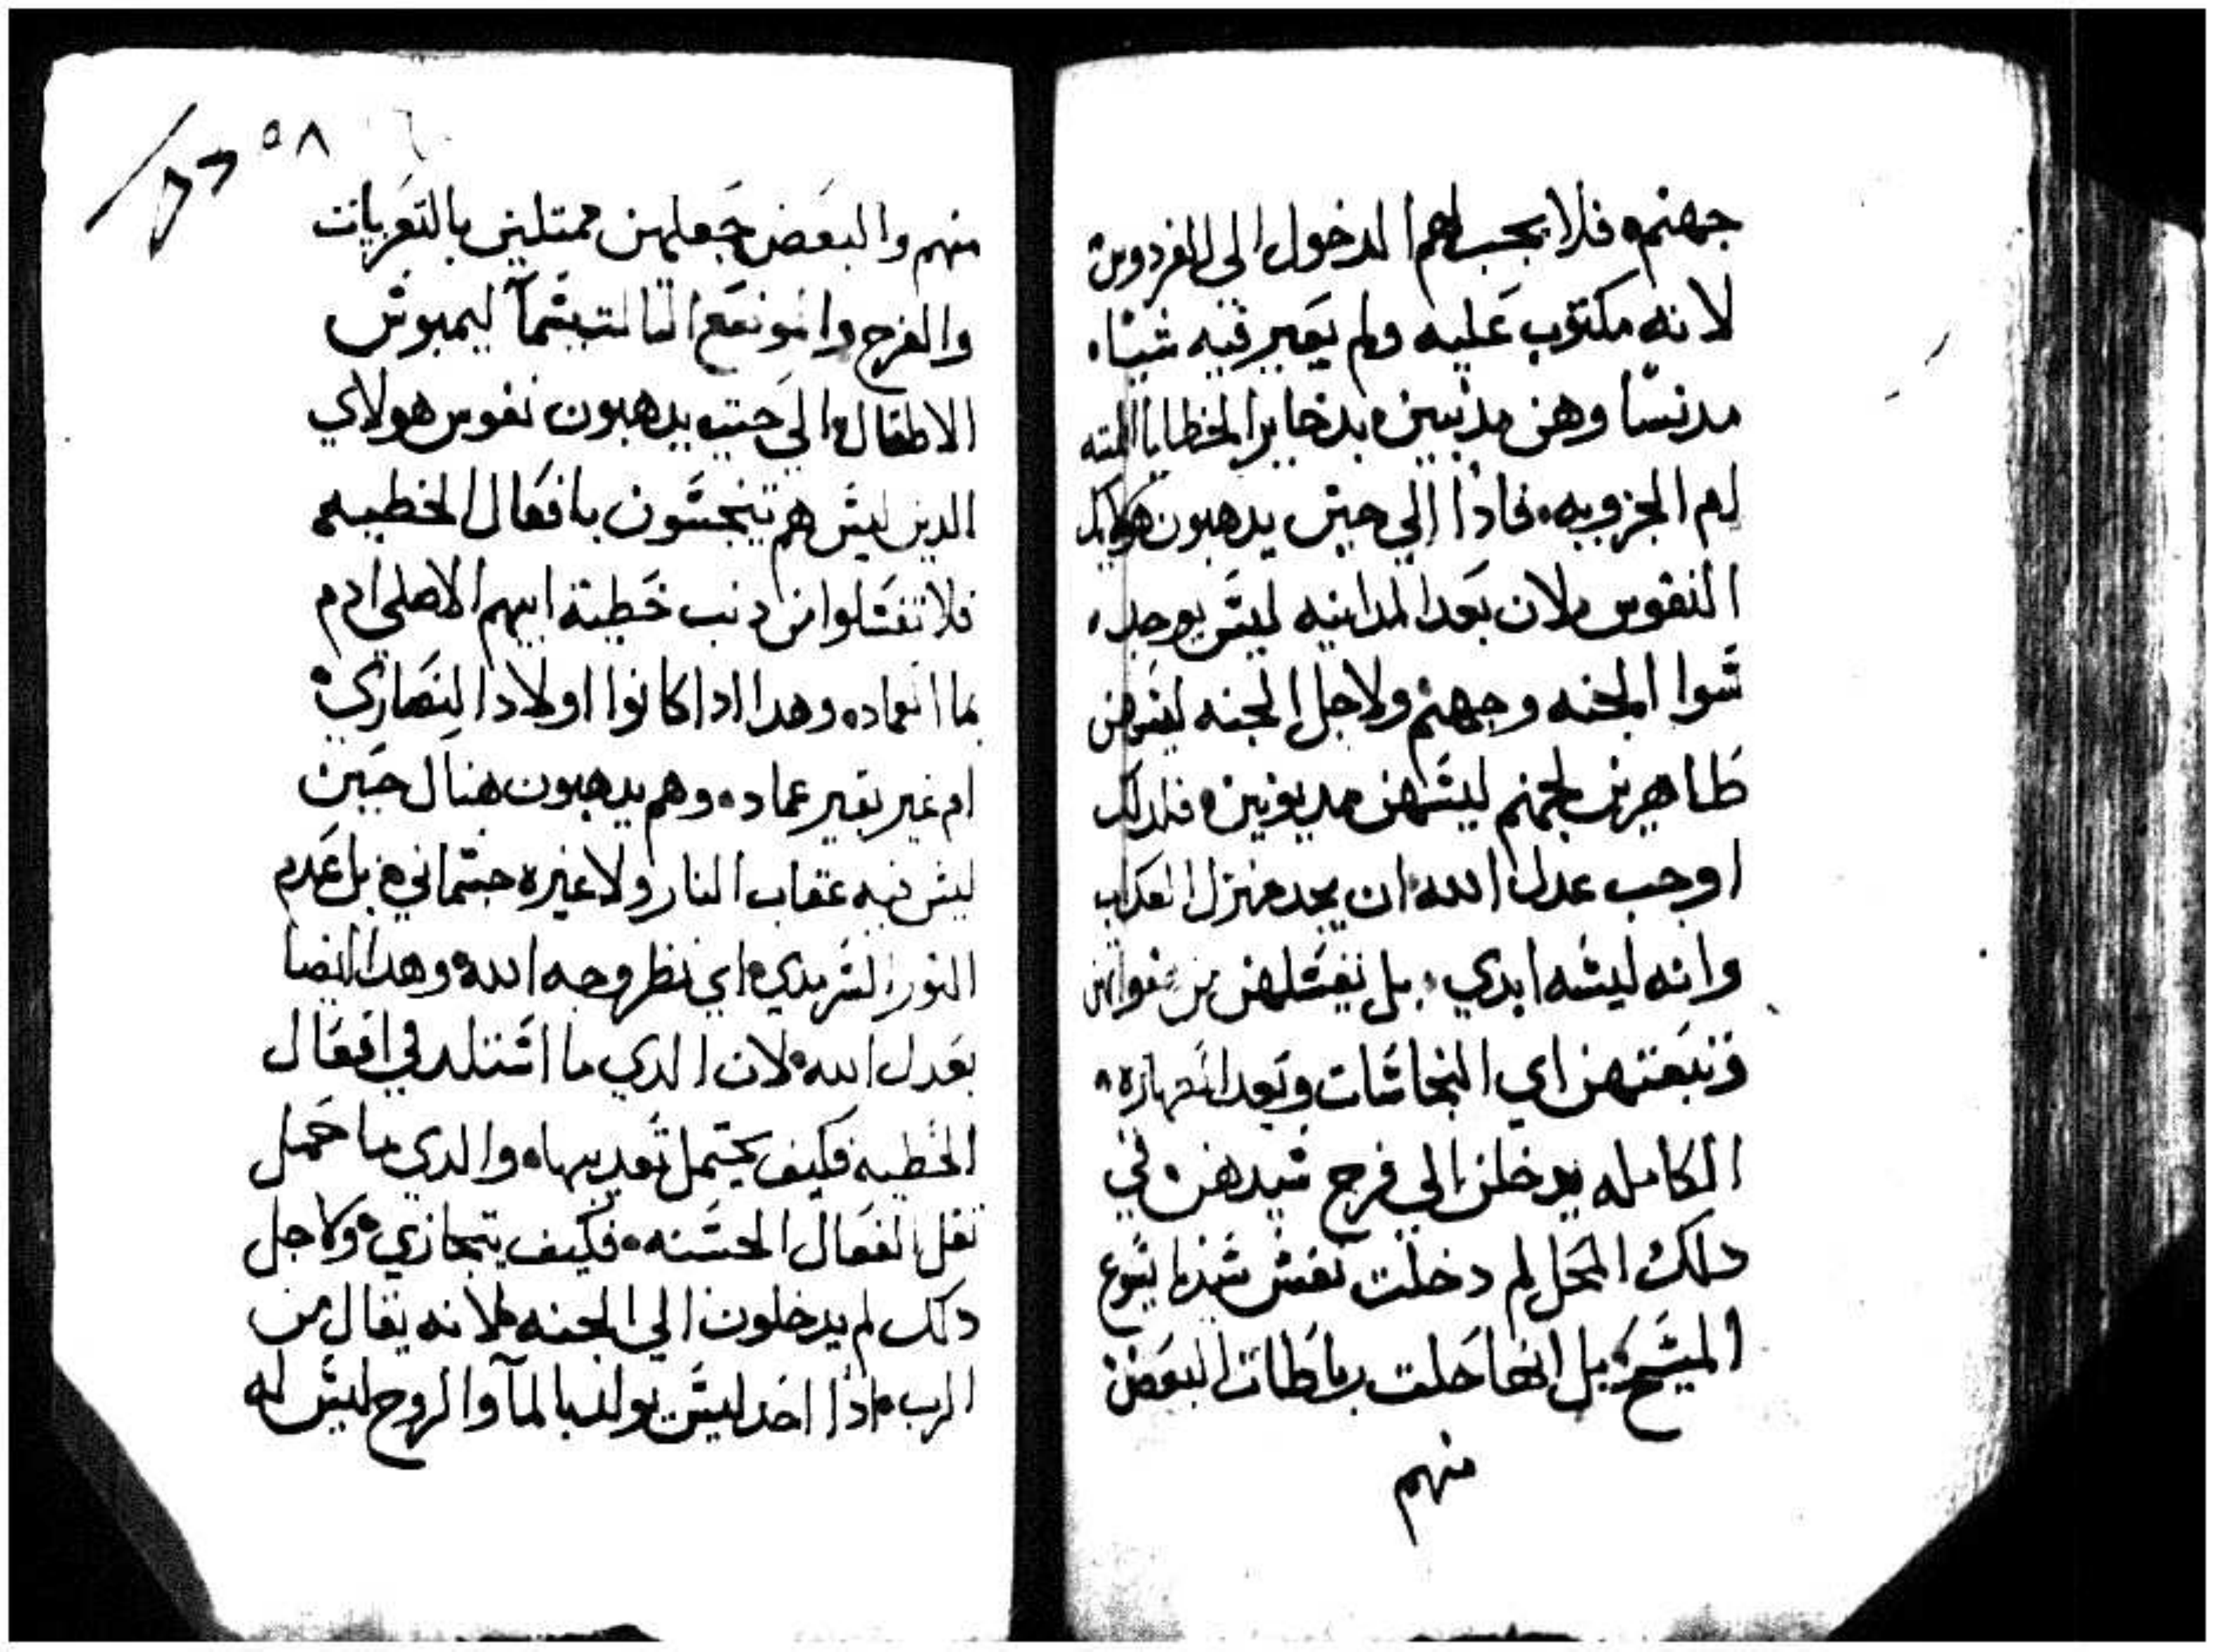 جهنم ٥ فلا يجب لهم الدخول الى الفردوس
لانه مكتوب عليه ولم يعبر فيه شياء
مدنسا وهن مدنبين ٥ بدخاير الخطايا
ام الجزوييه ٠ فادا الي حيث يدهبون
النفوس ٥ لان بعد المداينه ليس يوجد ٥
سوا الجنه وجهنم ولاجل الجنه ليسهن
طاهرين لجهنم ليسهن مديونين ٥ فلدلك
اوجب عدل الله ان يجد منزل العداب
وانه ليسه ابدي ٠ بل يغسلهن من
اي النجاسات وبعد الطهاره ٨
الكامله يدخلن الي فرح سيدهن ٥ في
دلك المحل لم دخلت نفس سيدنا يسوع
المسيح ٥ بل انها حلت رباطات البعض
منهم
٥٨
منهم والبعض جعلهن ممتلين بالتعزيات
والفرح وا التالت ليمبوس
الاطفال ٥ الي حيت يدهبون نفوس هولاي
الدين ليس هم يتنجسون بافعال الخطيه ٥
فلا تغسلوا من دنب خطية ابيهم الاصلي ادم
بما العماده ٥ وهدا ادا كانوا اولاد النصاري ٥
ام غير بغير عماده ٥ وهم يدهبون هناك حيث
ليس فيه عقاب النار ولا غيره جسماني ٥ بل عدم
النور السرمدي ٥ اي نظر وجه الله ٥ وهدا ايضا
بعدل الله ٥ لان الدي ما استلد في افعال
الخطيه فكيف يحتمل تعديبها ٥ والدي ما حمل
تقل الفعال الحسنه ٥ فكيف يتجازي ٥ ولاجل
دلك لم يدخلون الي الجنه ٥ لانه يقال من
الرب ٥ ادا احد ليس يولد بالمآ والروح ليس له